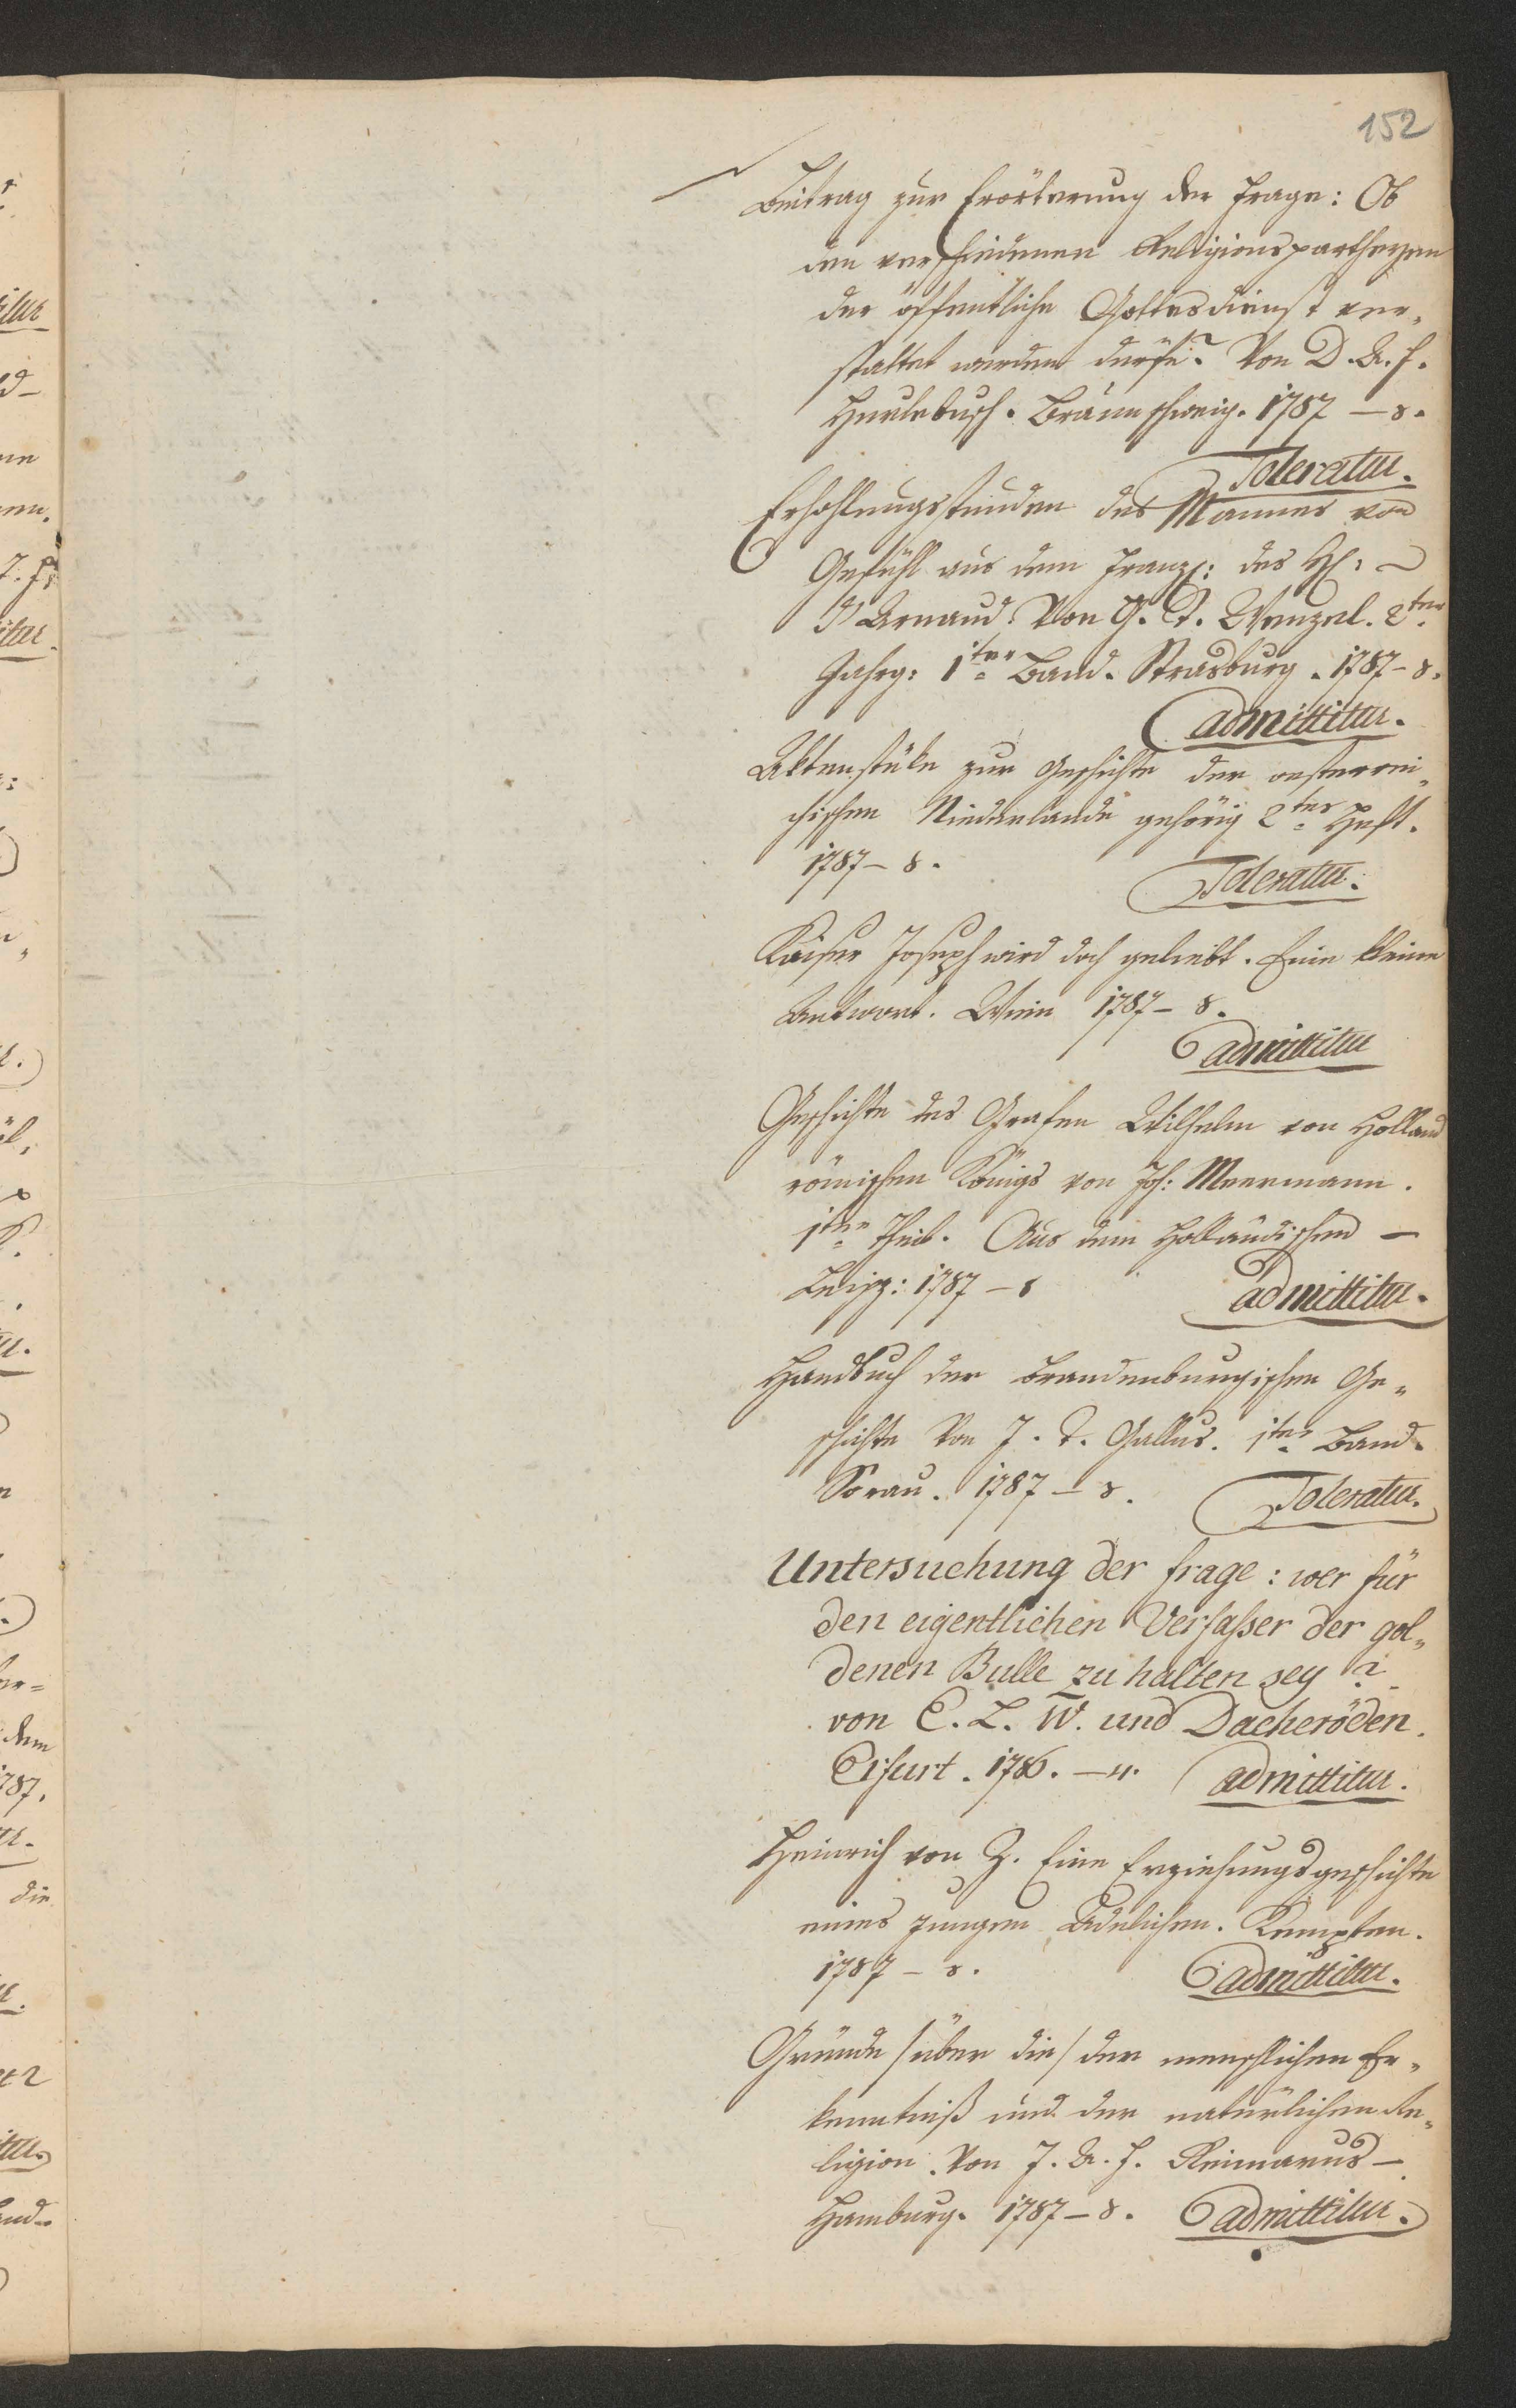 152
Beitrag zur Erörterung der Frage: Ob
den verschiedenen Religionspartheyen
der öffentliche Gottesdienst ver„
stattet werden dürfe? Von D. A. F.
Hurlebusch. Braunschweig. 1787 – 8.
Toleratur.
Erhohlungsstunden des Mannes von
Gefühl aus dem Franz: des H: –
D'Arnaud. Von G. I. Wenzel. 2ter
Jahrg: 1ter Band. Strasburg. 1787 – 8.
admittitur.
Aktenstüke zur Geschichte der oesterrei„
chischen Niederlande gehörig 2tes Heft.
1787 – 8.
Toleratur.
Kaiser Joseph wird doch geliebt. Eine kleine
Antwort. Wien 1787 – 8.
admittitur
Geschichte des Grafen Wilhelm von Holland
römischen Königs von Joh: Meermann.
1ter Theil. Aus dem Holländischen –
Leipz: 1787 – 8
admittitur.
Handbuch der brandenburgischen Ge„
schichte Von J. T. Gallus. 1ter Band.
Sorau. 1787 – 8. Toleratur.
Untersuchung der frage: wer für
den eigentlichen Verfaßer der gol„
denen Bulle zu halten sey?
von C. L. W. und Dacheröden.
Erfurt. 1786. – 4. admittitur.
Heinrich von Z. Eine Erziehungsgeschichte
eines jungen Adelichen. Kempten.
1787 – 8.
admittitur.
Gründe /über die/ der menschlichen Er„
kenntniß und der natürlichen Re„
ligion. Von J. A. H. Reimarus –
Hamburg. 1787 – 8. admittitur.